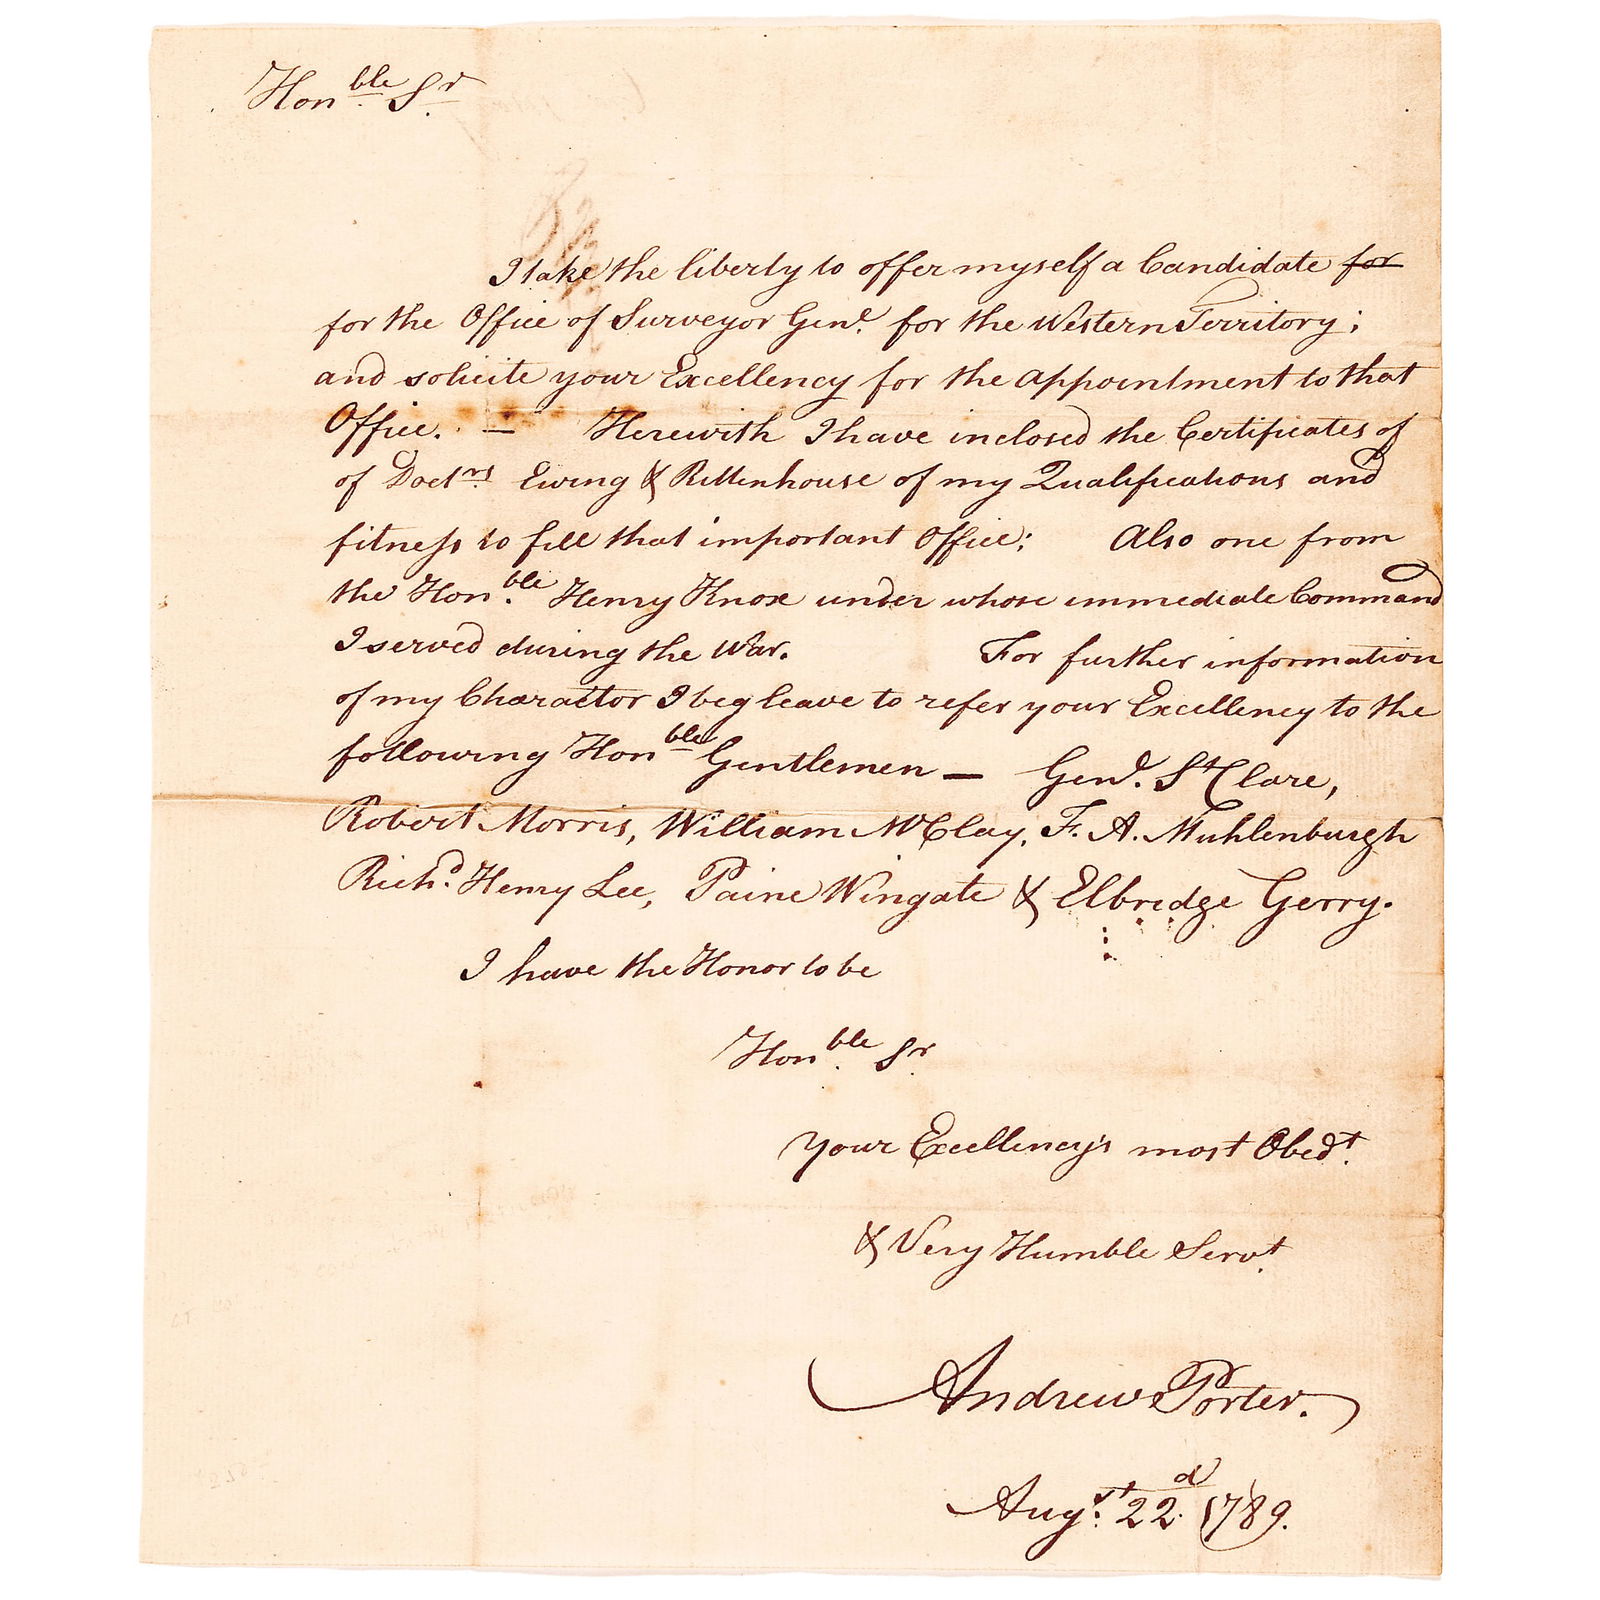 Hon.ble Sr.
I take the liberty to offer myself a Candidate for
for the Office of Surveyor Genl. for the Western Territory;
and solicite your Excellency for the appointment to that
Office. — Herewith I have inclosed the Certificates of
of Doctrs. Ewing & Rittenhouse of my Qualifications and
fitness to fill that important Office; Also one from
the Hon.ble Henry Knox under whose immediate Command
I served during the War. For further information
of my Charactor I beg leave to refer your Excellency to the
following Honble Gentlemen — Genl. St Clare,
Robert Morris, William McClay, F. A. Muhlenburgh
Richd. Henry Lee, Paine Wingate & Elbredge Gerry.
I have the Honor to be
Hon.ble Sr.
Your Excellency's most Obedt.
& Very Humble Servt.
Andrew Porter.
Augst. 22d. 1789.